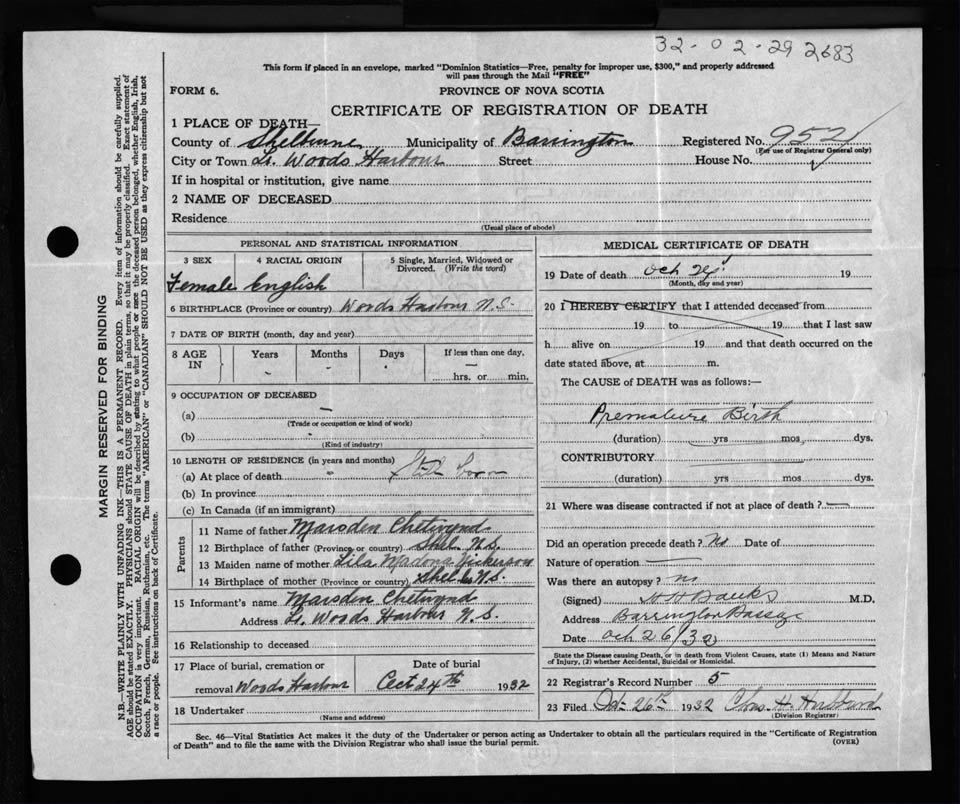 32-02-29 2683
This form if placed in an envelope, marked "Dominion Statistics—Free, penalty for improper use, $300," and properly addressed
will pass through the Mail "FREE"
FORM 6.
PROVINCE OF NOVA SCOTIA
CERTIFICATE OF REGISTRATION OF DEATH
1 PLACE OF DEATH—
County of Shelburne Municipality of Barrington Registered No. 952
(For use of Registrar General only)
City or Town Lr. Woods Harbour Street House No.
If in hospital or institution, give name
2 NAME OF DECEASED
Residence
(Usual place of abode)
PERSONAL AND STATISTICAL INFORMATION
3 SEX 4 RACIAL ORIGIN 5 Single, Married, Widowed or
Divorced. (Write the word)
Female English
6 BIRTHPLACE (Province or country) Woods Harbour N.S.
7 DATE OF BIRTH (month, day and year)
8 AGE IN Years Months Days If less than one day,
hrs. or min.
9 OCCUPATION OF DECEASED
(a)
(Trade or occupation or kind of work)
(b)
(Kind of industry)
10 LENGTH OF RESIDENCE (in years and months)
(a) At place of death Still born
(b) In province
(c) In Canada (if an immigrant)
Parents
11 Name of father Marsden Chetwynd
12 Birthplace of father (Province or country) Shel. N.S.
13 Maiden name of mother Lila Madona Nickerson
14 Birthplace of mother (Province or country) Shel Co N.S.
15 Informant's name Marsden Chetwynd
Address Lr. Woods Harbour N.S.
16 Relationship to deceased
17 Place of burial, cremation or Date of burial
removal Woods Harbour Oct 24th 1932
18 Undertaker
(Name and address)
MEDICAL CERTIFICATE OF DEATH
19 Date of death Oct 24 19
(Month, day and year)
20 I HEREBY CERTIFY that I attended deceased from
19 to 19 that I last saw
h alive on 19 and that death occurred on the
date stated above, at m.
The CAUSE OF DEATH was as follows:—
Premature Birth
(duration) yrs mos dys.
CONTRIBUTORY
(duration) yrs mos dys.
21 Where was disease contracted if not at place of death?
Did an operation precede death? No Date of
Nature of operation
Was there an autopsy? no
(Signed) H H Banks M.D.
Address Barrington Passage
Date Oct 26/32
State the Disease causing Death, or in death from Violent Causes, state (1) Means and Nature
of Injury, (2) whether Accidental, Suicidal or Homicidal.
22 Registrar's Record Number 5
23 Filed Oct 26th 1932 Chas. H.
(Division Registrar)
Sec. 46—Vital Statistics Act makes it the duty of the Undertaker or person acting as Undertaker to obtain all the particulars required in the "Certificate of Registration
of Death" and to file the same with the Division Registrar who shall issue the burial permit.
(OVER)
MARGIN RESERVED FOR BINDING
N.B.—WRITE PLAINLY WITH UNFADING INK—THIS IS A PERMANENT RECORD. Every item of information should be carefully supplied.
AGE should be stated EXACTLY. PHYSICIANS should STATE CAUSE OF DEATH in plain terms, so that it may be properly classified. Exact statement of
OCCUPATION is very important. RACIAL ORIGIN will be described by stating to what people or race the deceased person belonged, whether English, Irish,
Scotch, French, German, Russian, Ruthenian, etc. The terms "AMERICAN" or "CANADIAN" SHOULD NOT BE USED as they express citizenship but not
a race or people. See instructions on back of Certificate.